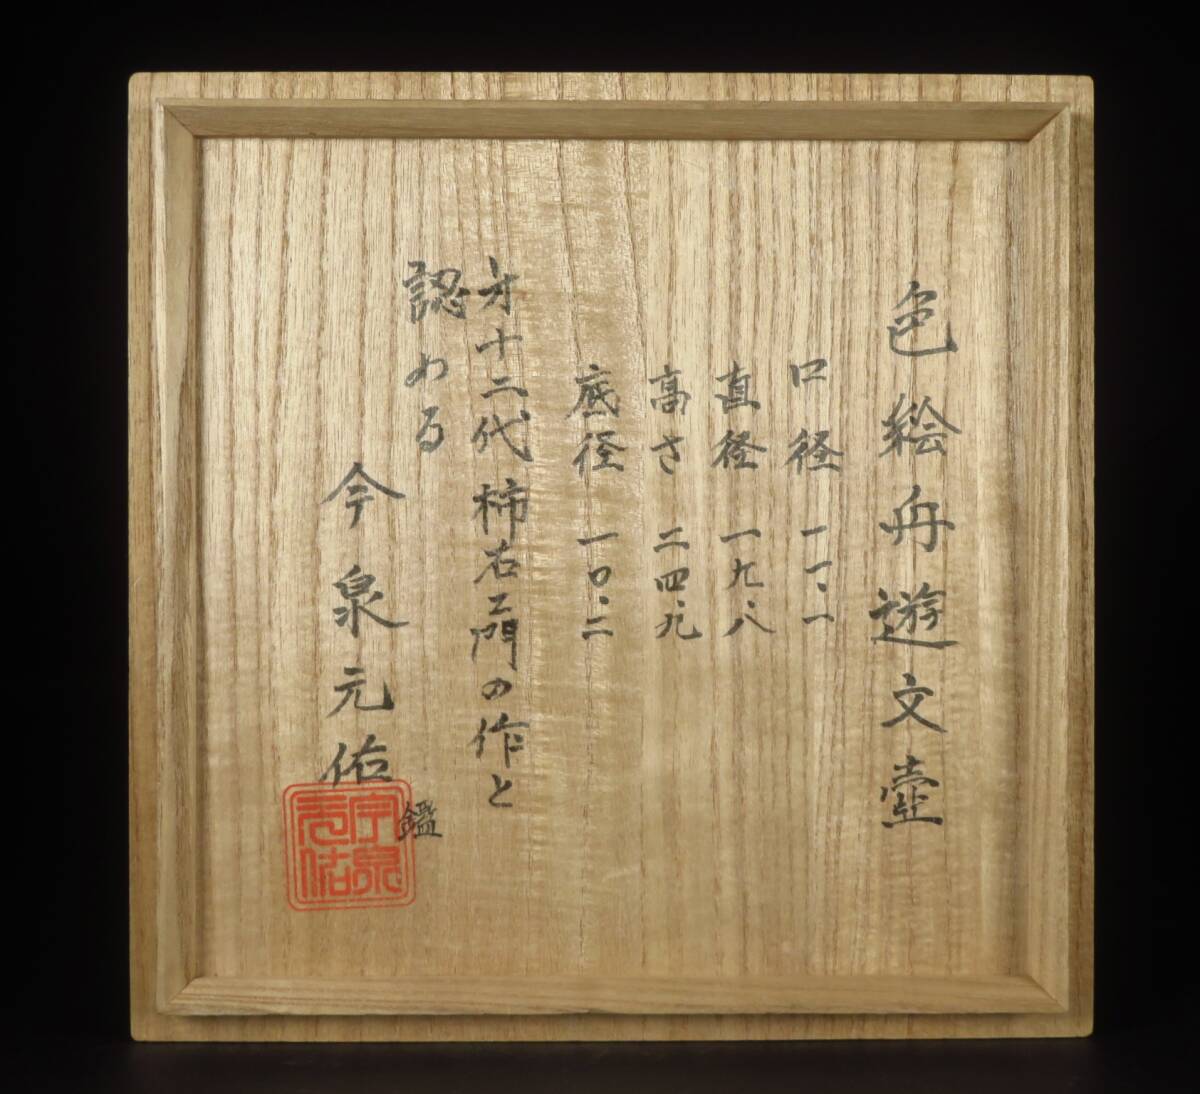 色絵舟遊文壷
口径 一一・一
直径 一九・八
高さ 二四・九
底径 一〇・二
才十二代柿右エ門の作と
認める
今泉元佑
鑑
今泉元佑